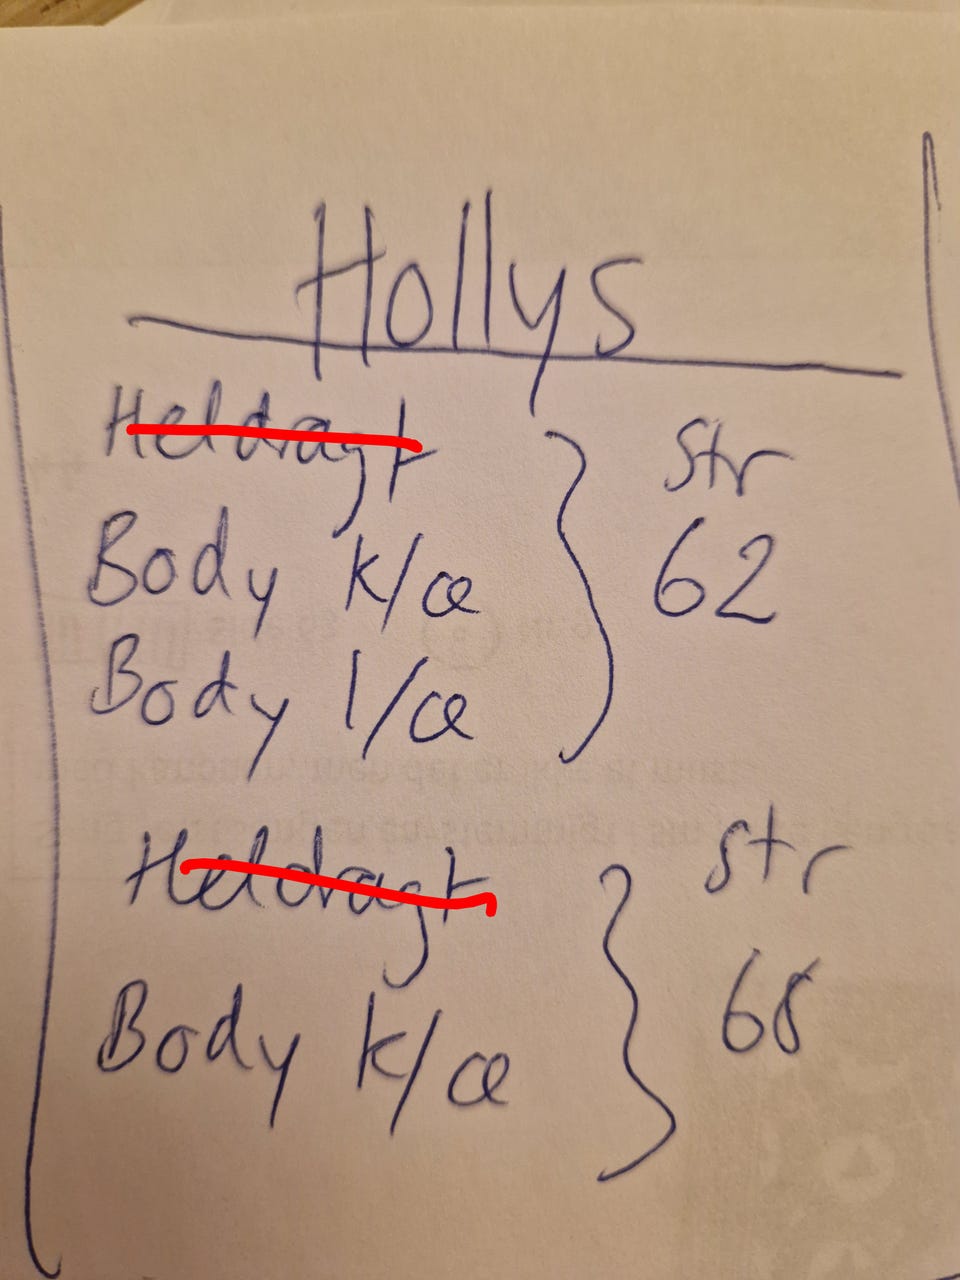 Hollys
Heldragt
Body k/æ
Body l/æ
Str
62
Heldragt
Body k/æ
Str
68